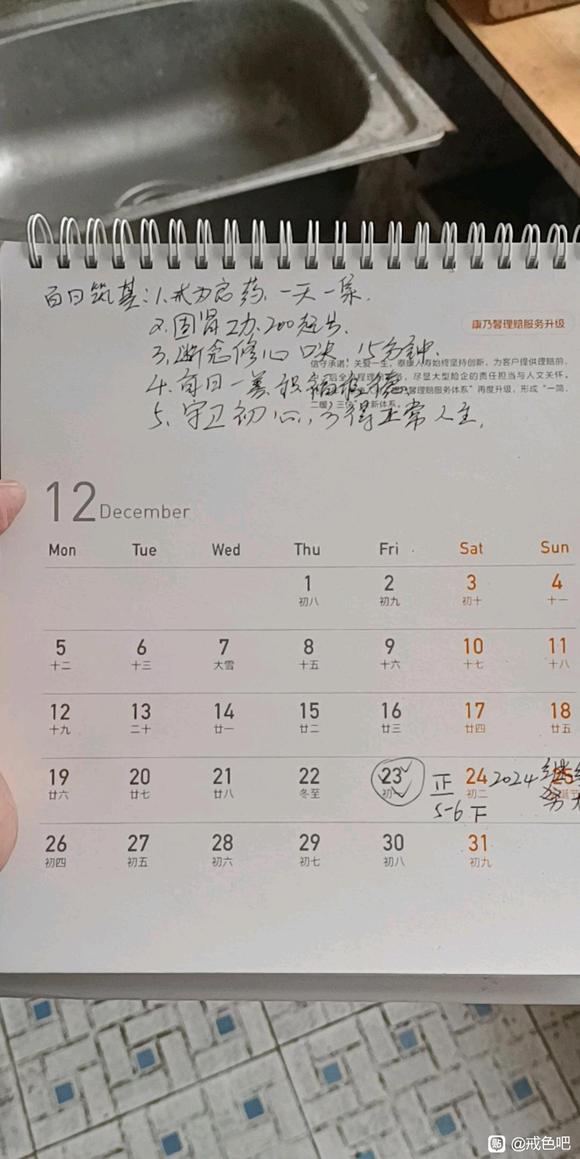 百日筑基:1.戒为良药,一天一集.
2.固肾功.200起步.
3.断念修心口诀15分钟.
4.每日一善,积福
5、守卫初心,
康乃馨理赔服务升级
信守承诺,关爱一生,泰康人寿始终坚持创新,为客户提供理赔前、
尽显大型险企的责任担当与人文关怀。
馨理赔服务体系”再度升级,形成“一简、
二暖、三
新体系。
12 December
Mon Tue Wed Thu Fri Sat Sun
1 2 3 4
初八 初九 初十 十一
5 6 7 8 9 10 11
十二 十三 大雪 十五 十六 十七 十八
12 13 14 15 16 17 18
十九 二十 廿一 廿二 廿三 廿四 廿五
19 20 21 22 23 正 24 2024 继续
廿六 廿七 廿八 冬至 初 5-6下 初二 努力
26 27 28 29 30 31
初四 初五 初六 初七 初八 初九
贴 @戒色吧